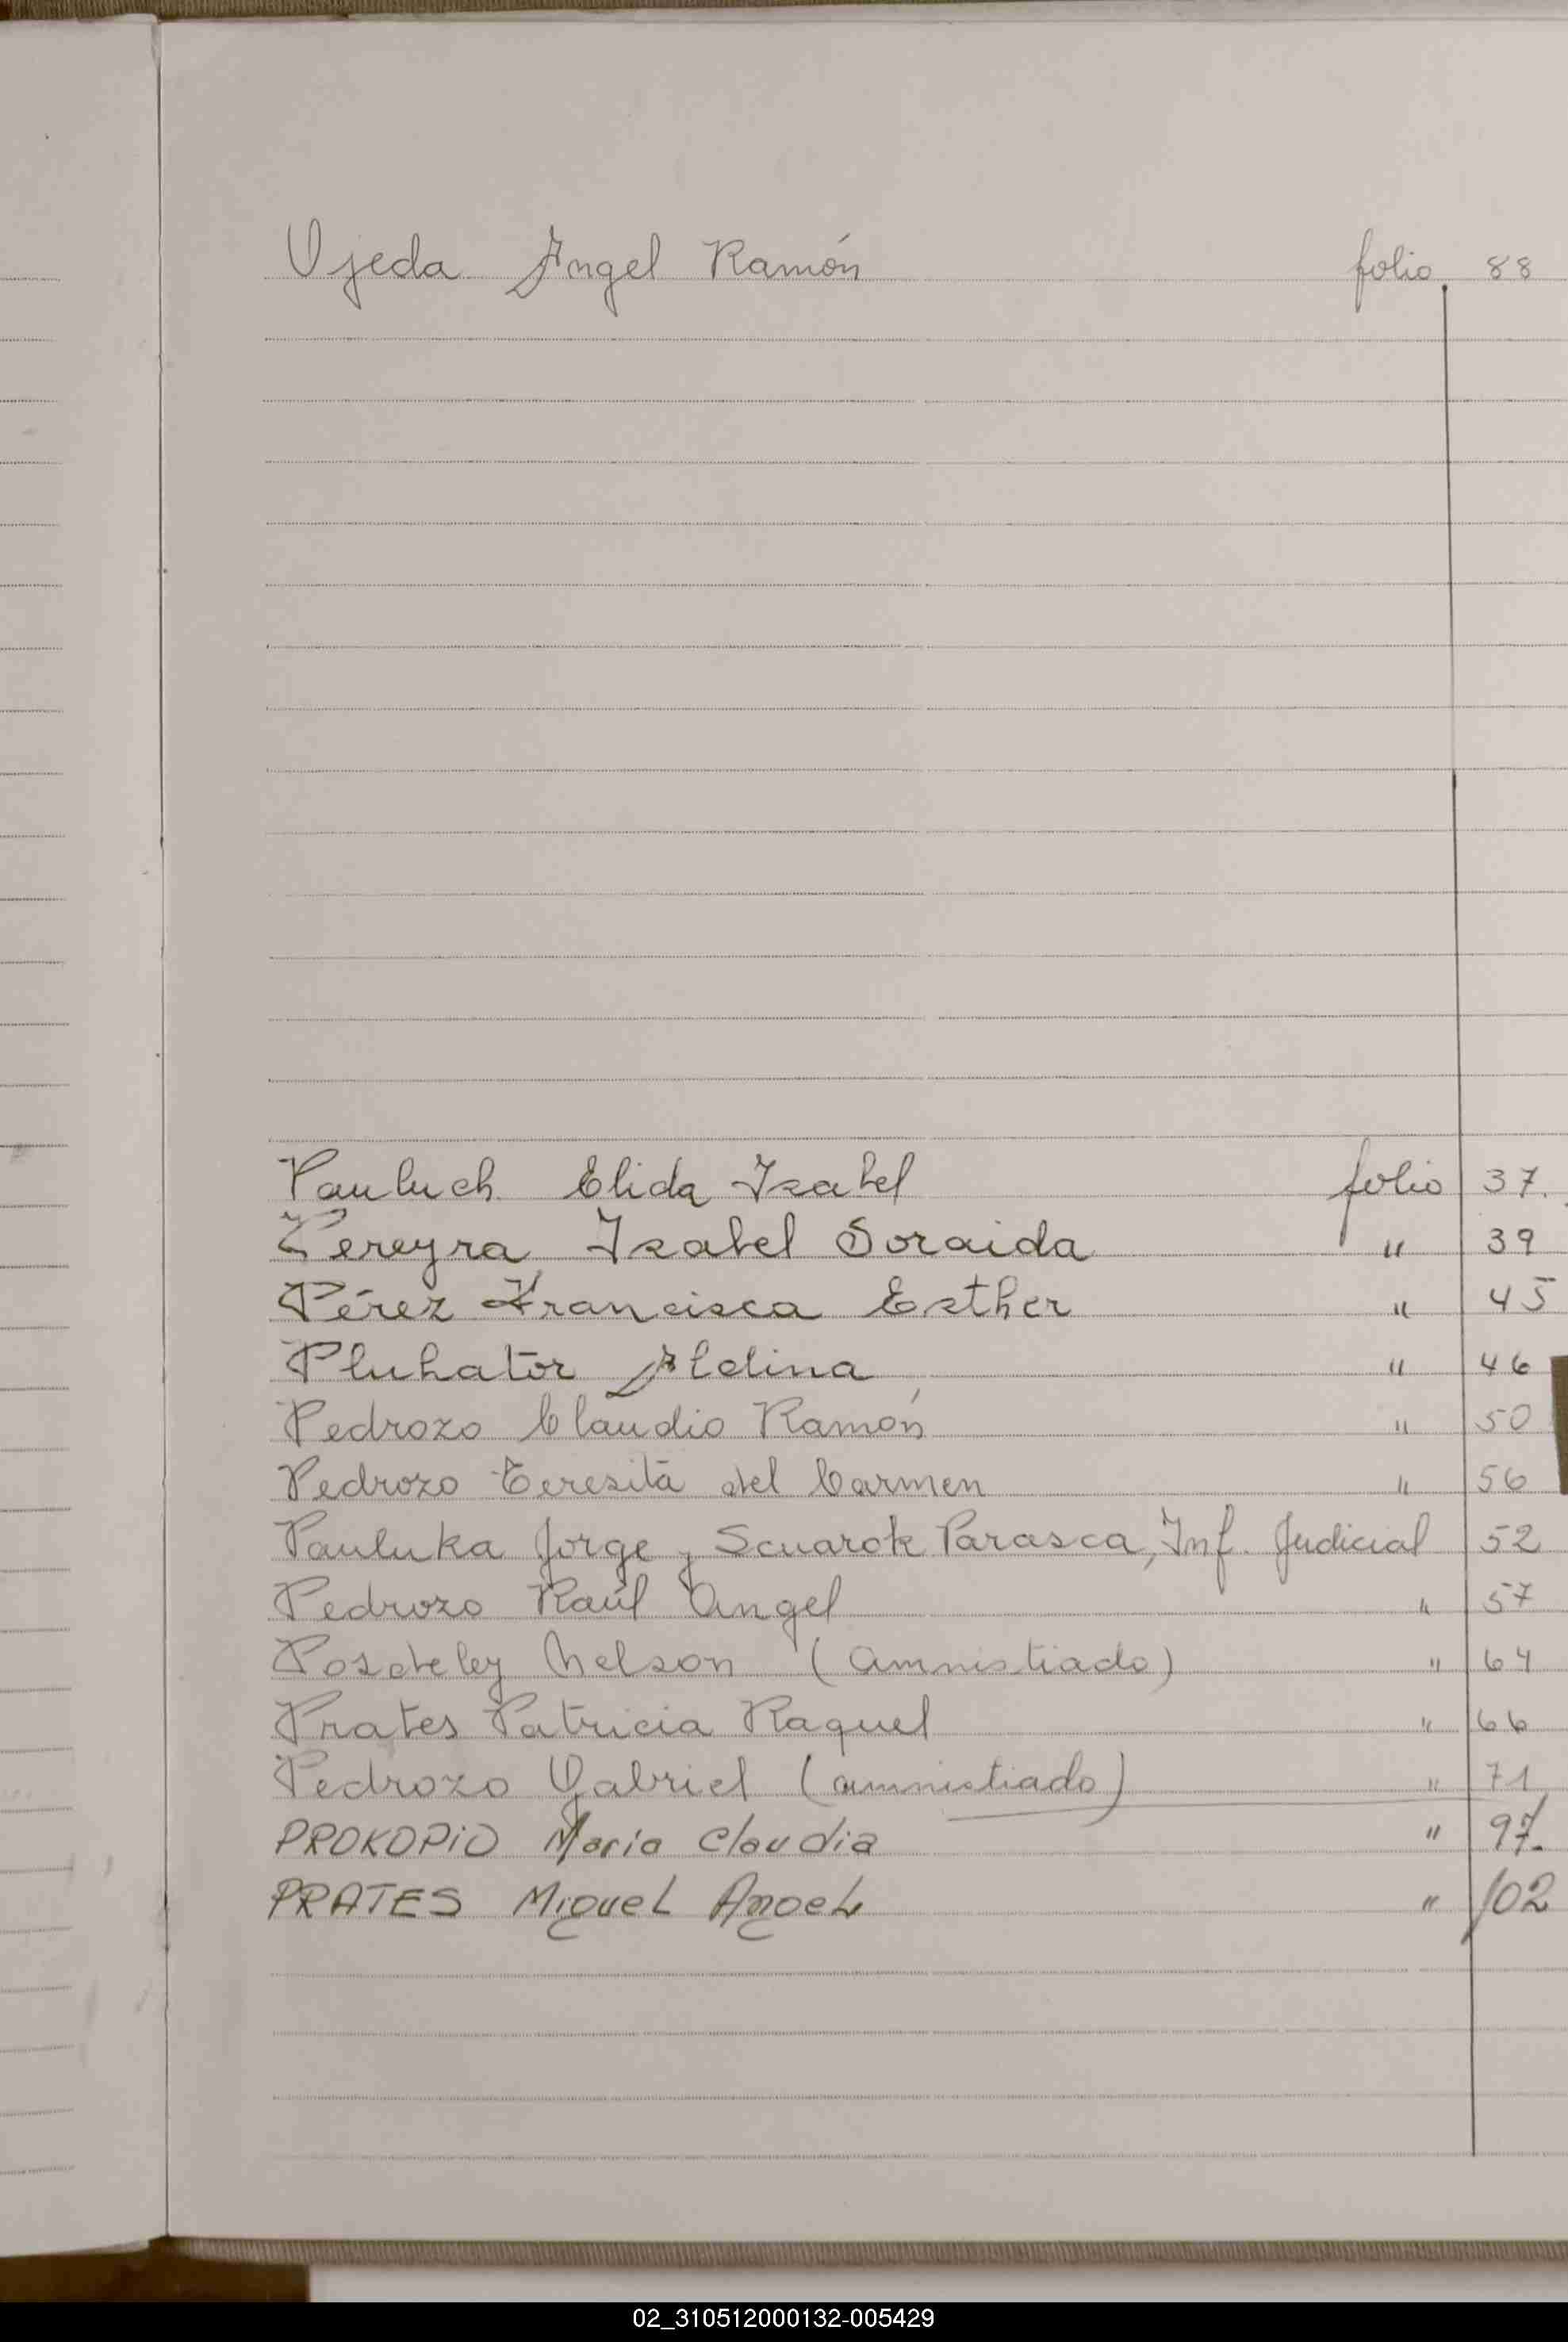 Ojeda Ángel Ramón folio 88
Pauluch Elida Isabel folio 37.
Pereyra Isabel Soraida " 39
Pérez Francisca Esther " 45
Pluhator Aldina " 46
Pedrozo Claudio Ramón " 50
Pedrozo Teresita del Carmen " 56
Pauluka Jorge y Scuarok Parasca, Inf. Judicial 52
Pedrozo Raúl Angel " 57
Posdeley Nelson (amnistiado) " 64
Prates Patricia Raquel " 66
Pedrozo Gabriel (amnistiado) " 71
PROKOPIO Maria Claudia " 97.
PRATES Miguel Angel " 102
02_310512000132-005429